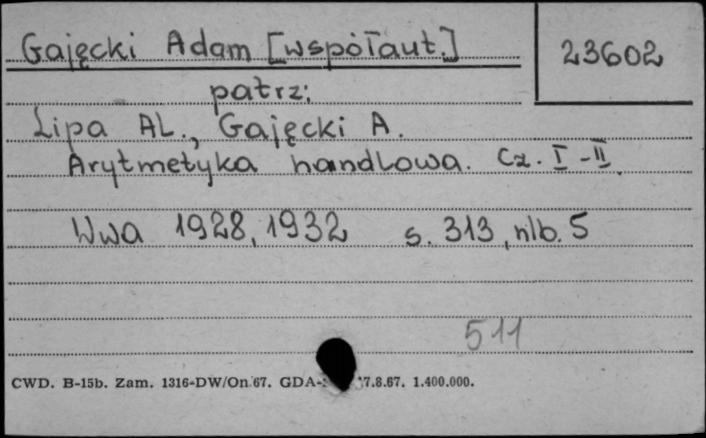 Gajęcki Adam [współaut.]
23602
patrz:
Lipa AL., Gajęcki A.
Arytmetyka handlowa. Cz. I-II.
Wwa 1928, 1932 s. 313, nlb. 5
511
CWD. B-15b. Zam. 1316-DW/On 67. GDA- 7.8.67. 1.400.000.